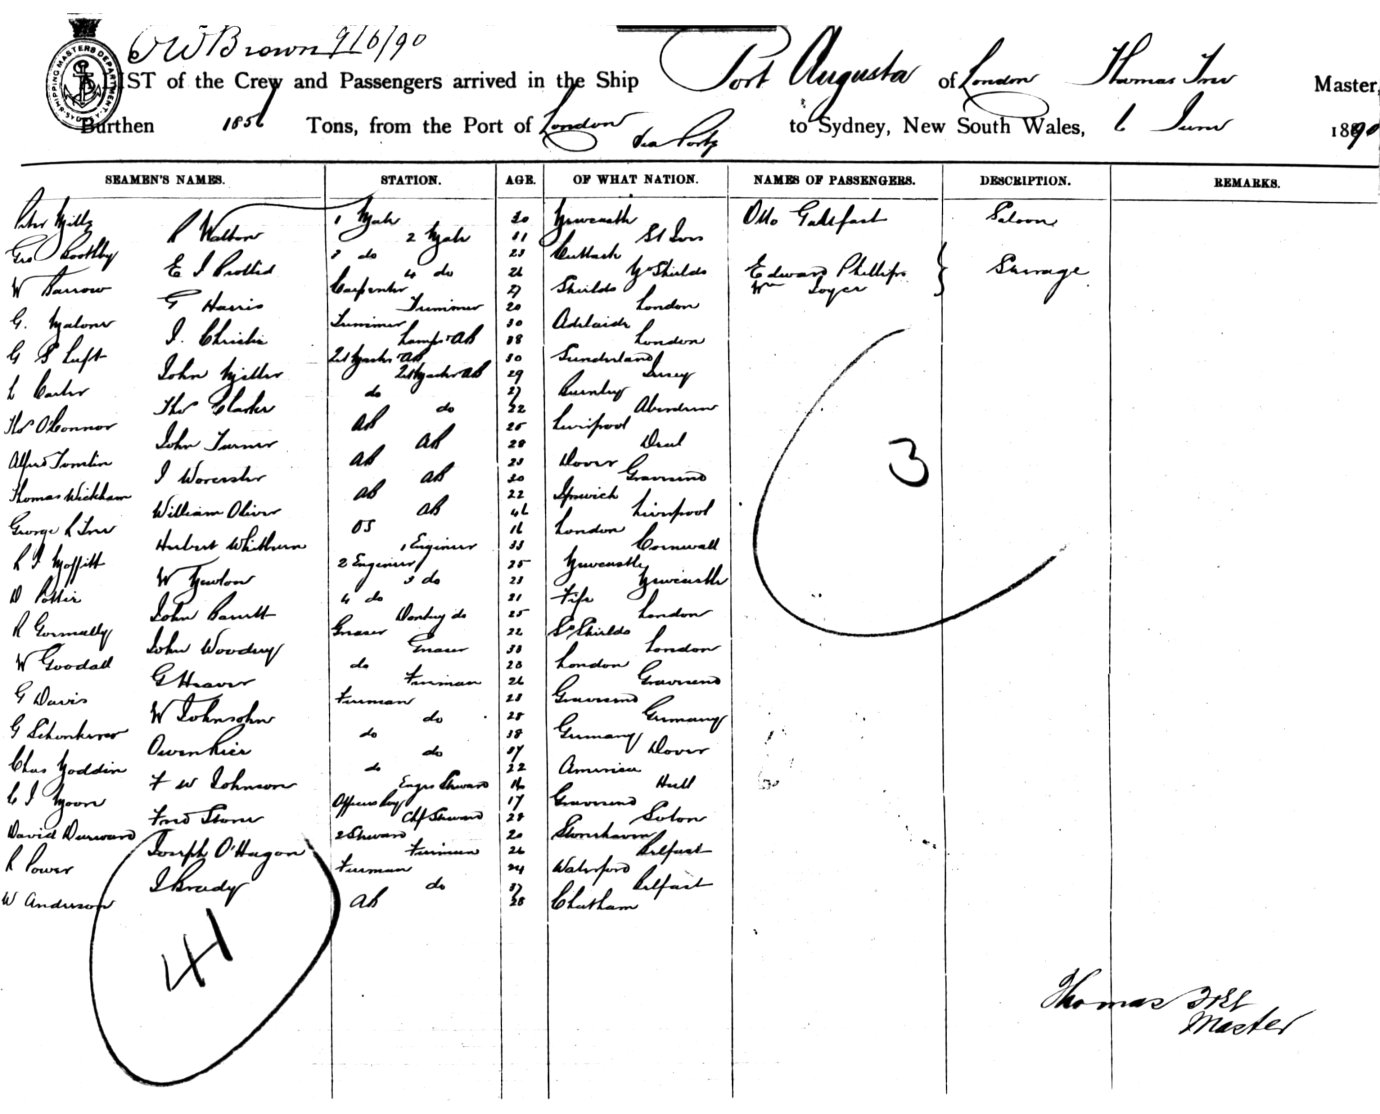 W Brown 9/6/90
SHIPPING MASTERS DEPARTMENT
LIST of the Crew and Passengers arrived in the Ship Port Augusta of London Thomas Master,
Burthen 1856 Tons, from the Port of London via Ports to Sydney, New South Wales, 6 June 1890
SEAMEN'S NAMES. STATION. AGE. OF WHAT NATION. NAMES OF PASSENGERS. DESCRIPTION. REMARKS.
Peter Mills 1 Mate 30 Newcastle Otto Saloon
R Walton 2 Mate 31 St Ives
Geo Boothby 3 do 23
E J 4 do 26 No Shields Edward Phillips } Steerage
W Barrow Carpenter 27 Shields Wm
G Harris Trimmer 20 London
G. Malone Trimmer 30 Adelaide
J. Christie Lamps & AB 38 London
G S Luft AB 30 Sunderland
John Miller AB 29
L Carter do 27 Burnley
Thos Clarke do 22 Aberdeen
Thos O'Connor AB 25 Liverpool
John Turner AB 28 Deal
Alfred Tomlin AB 23 Dover
J Worcester AB 30 Gravesend
Thomas Wickham AB 22 Ipswich
William Oliver AB 46 Liverpool
George R OS 16 London
Herbert 1 Engineer 33 Cornwall
R J Moffitt 2 Engineer 25 Newcastle
W Newton 3 do 23 Newcastle
D 4 do 21 Fife
John Barrett Donkey do 25 London
R Gormally Greaser 22 So Shields
John Woodey Greaser 33 London
W Goodall do 28 London
G Heaver Fireman 26 Gravesend
G Davis Fireman 28 Gravesend
W Johnsohn do 28 Germany
G do 38 Germany
Owen do 37 Dover
Chas Hoddin do 22 America
F W Johnson Engrs Steward 16 Hull
C J Moon Officers Boy 17 Gravesend
Fred Stone Chf Steward 28 Soton
David Durward 2 Steward 20 Stonehaven
Joseph O'Hagan Fireman 26 Belfast
R Power Fireman 24 Waterford
J Brady do 37 Belfast
W Anderson AB 28 Chatham
3
41
Thomas
Master